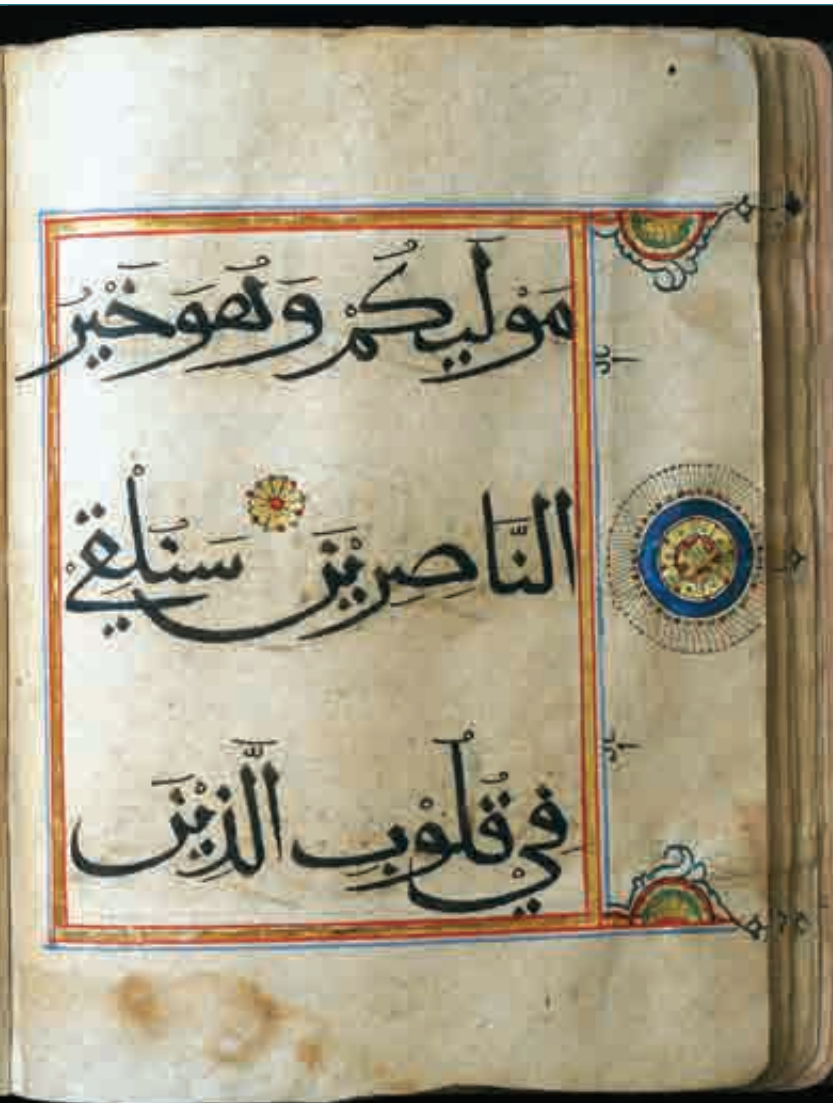 مَوْلَيكُمْ وَهُوَ خَيْرُ
النَّاصِرِيْنَ سَنُلْقِيْ
فِيْ قُلُوْبِ الَّذِيْنَ